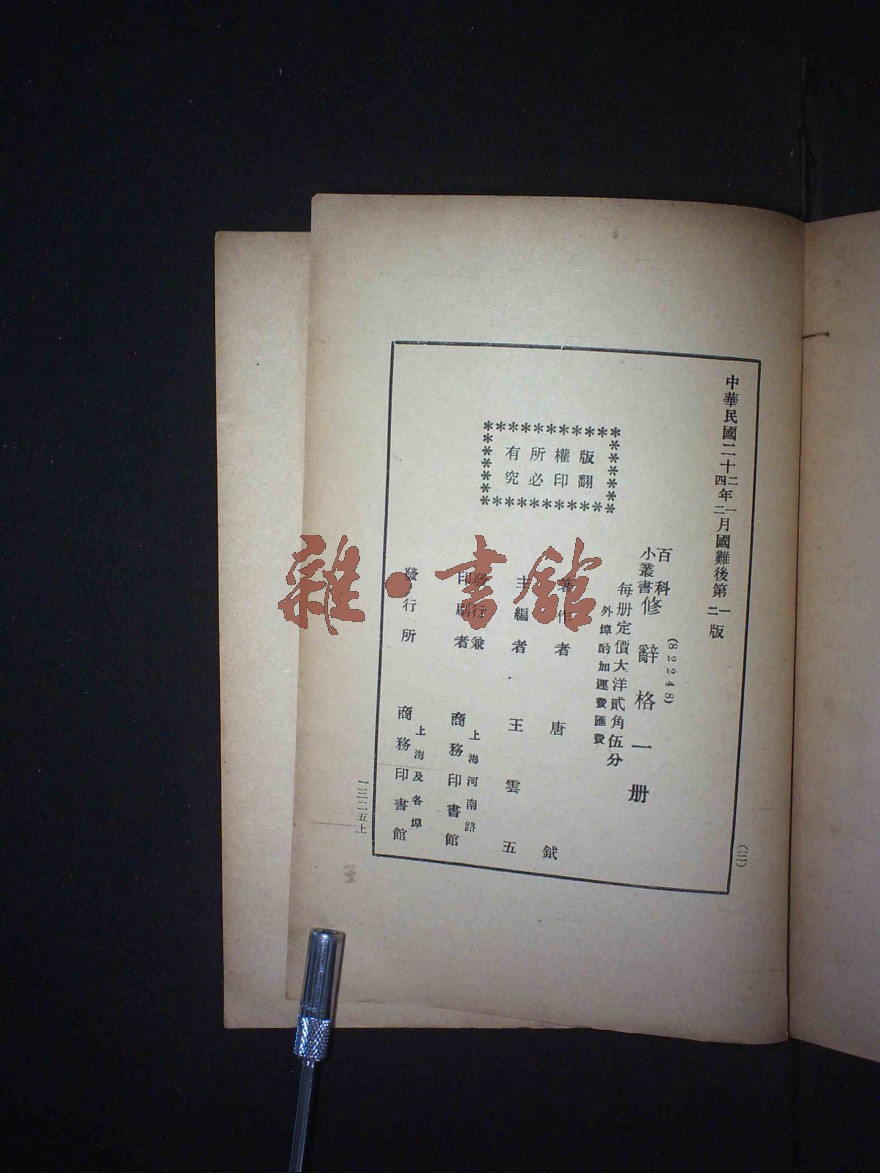 中華民國二十二年一月國難後第一版
四 二 二
(82248)
百科
小叢書
修辭格一册
每册定價大洋貳角伍分
外埠酌加運費匯費
版權所有
翻印必究
著作者 唐鉞
主編者 王雲五
發行兼
印刷者
上海河南路
商務印書館
發行所
上海及各埠
商務印書館
(三)
雜·書館